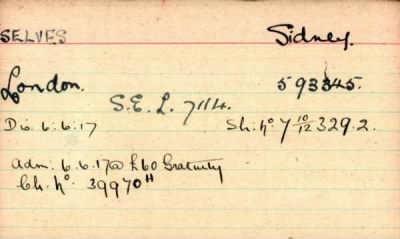 SELVES Sidney.
London. 593345.
S.E. L. 7114.
Dis. 6.6.17 Sh: No 7 10/12 329.2.
Adm. 6.6.17 @ £60 Gratuity
Ch. No. 39970H